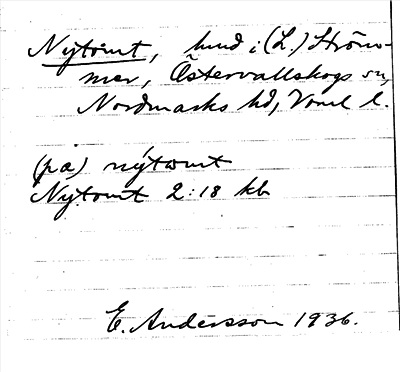 Nytomt, hmd i (L.) Ström-
mer, Östervallskogs sn,
Nordmarks hd, Vrml l.
(pa) nýtomt
Nytomt 2:18 kb
E. Andersson 1936.